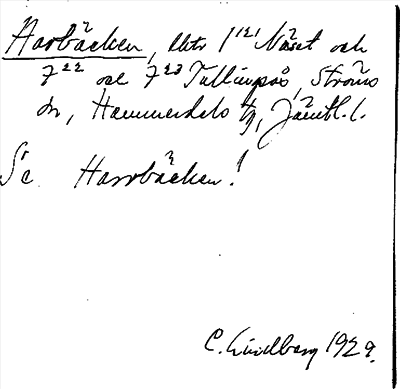 Harbäcken, lltr 1¹²¹ Näset och
7²² och 7²³ Tullingsås, Ströms
sn, Hammerdals tg, Jämtl. l.
Se Harrbäcken!
C. Lindberg 1929.